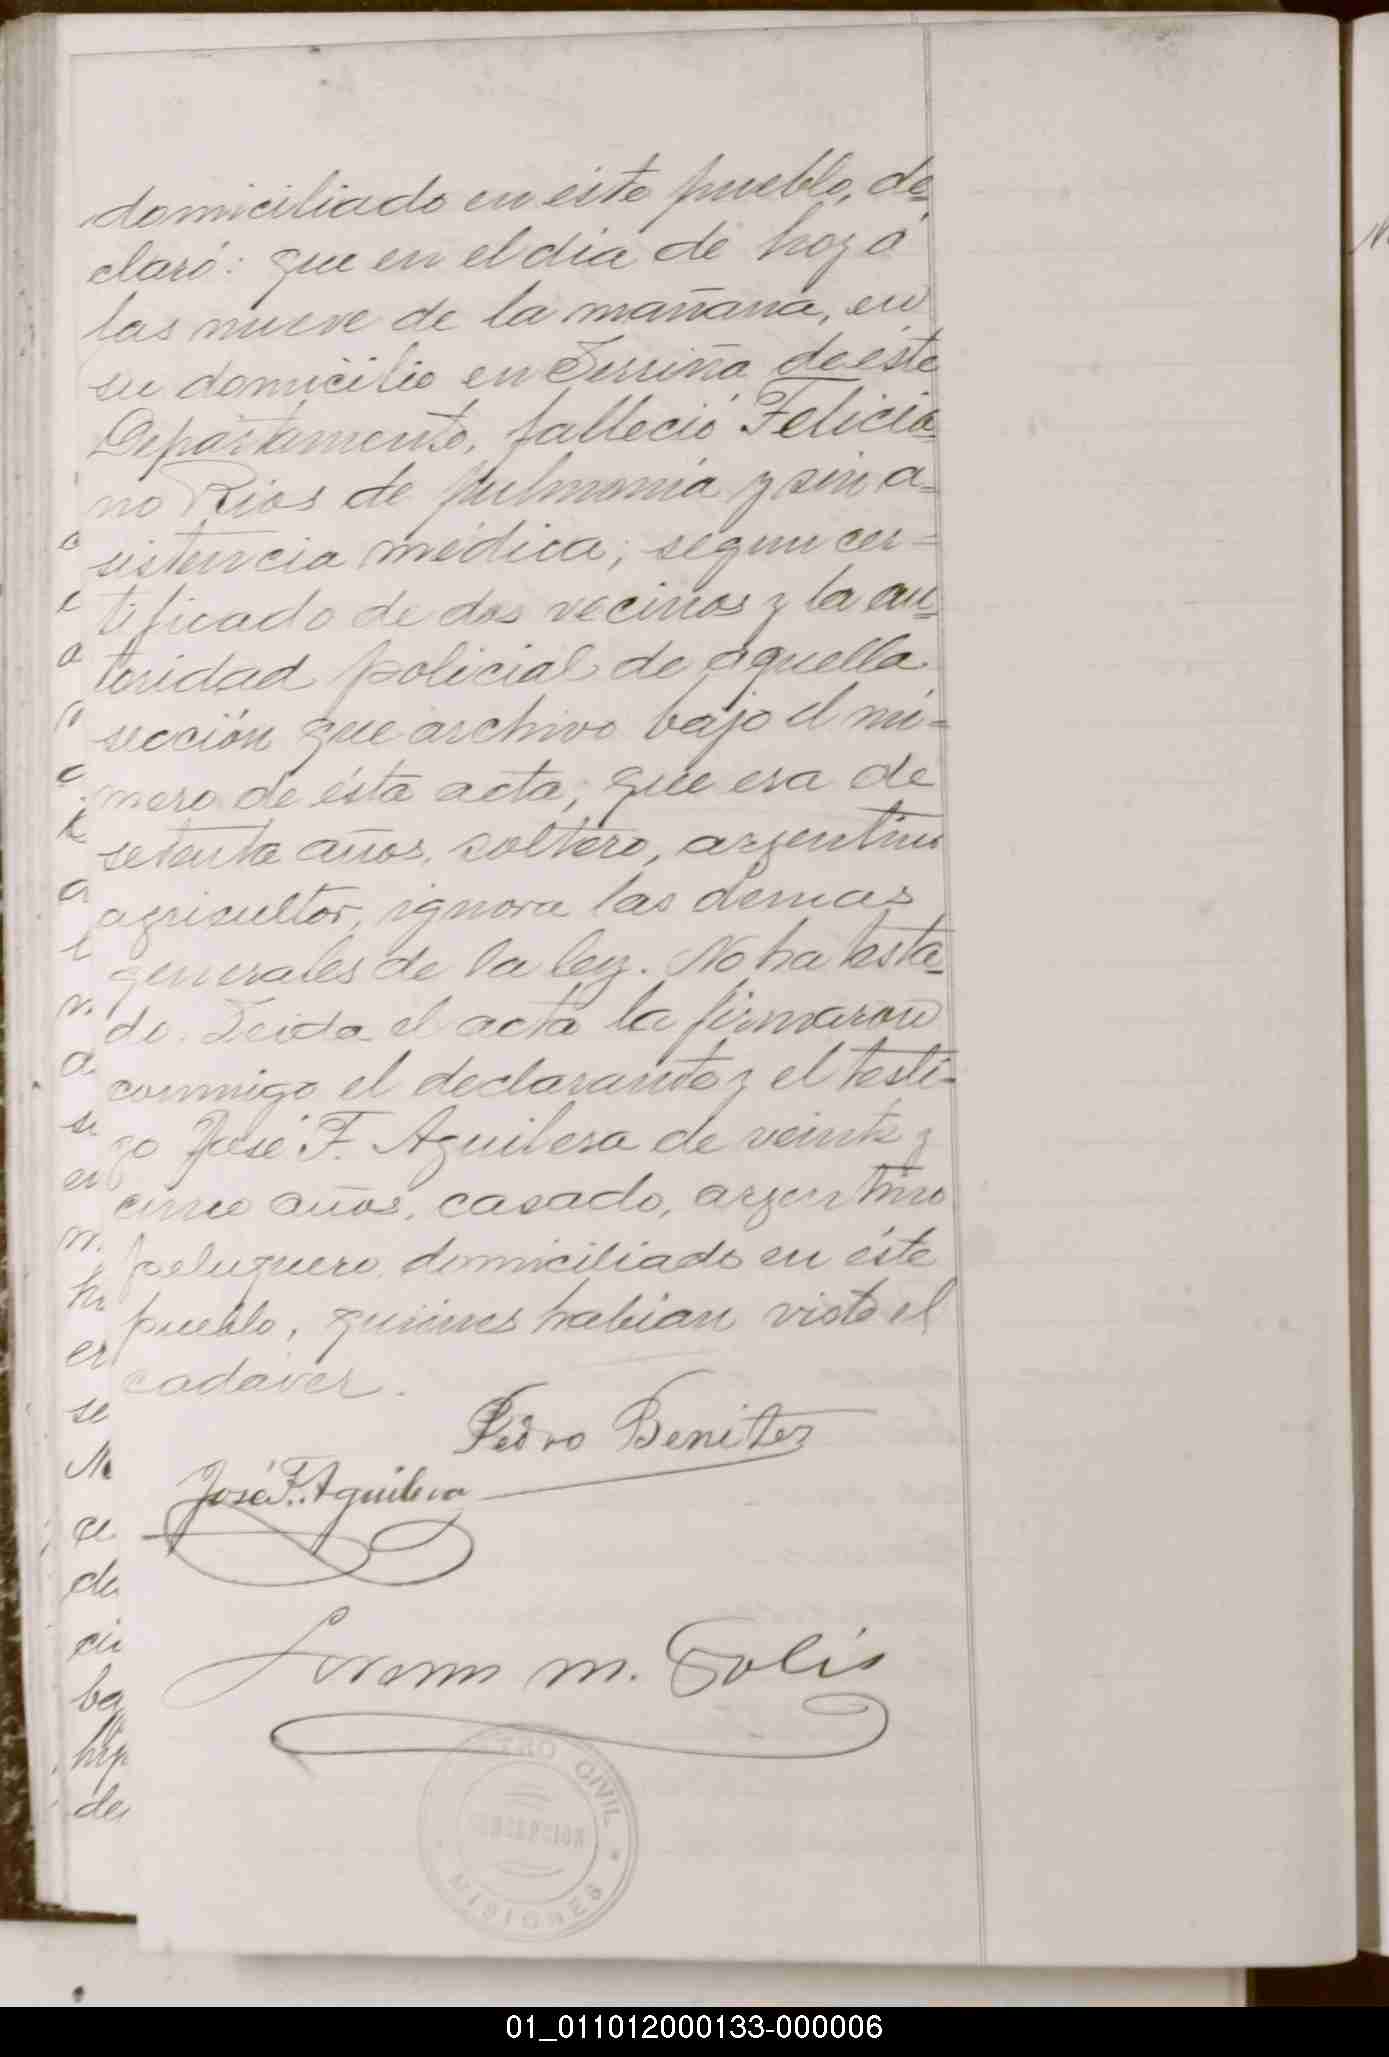 domiciliado en éste pueblo, de=
claró: que en el dia de hoy á
las nueve de la mañana, en
su domicilio en de éste
Departamento, falleció Felicia=
no Rios de pulmonia y sin a=
sistencia médica; segun cer=
tificado de dos vecinos y la au=
toridad policial de aquella
sección que archivo bajo el nú=
mero de ésta acta; que era de
setenta años, soltero, argentino
agricultor, ignora las demas
generales de la ley. No ha testa=
do. Leida el acta la firmaron
conmigo el declarante y el testi=
go José F. Aguilera de veinte y
cinco años, casado, argentino
peluquero domiciliado en éste
pueblo, quiénes habian visto el
cadáver.
Pedro Benitez
José F. Aguilera
M. Solis
REGISTRO CIVIL
CONCEPCION
MISIONES
01_011012000133-000006